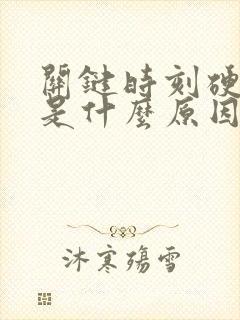 關鍵時刻硬
是什麼原因
沐寒殤雪